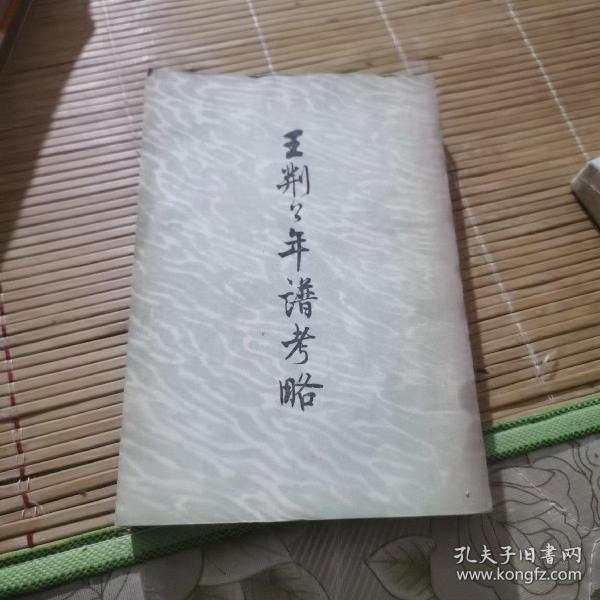 王荆公年谱考略
孔夫子旧書网
www.kongfz.com